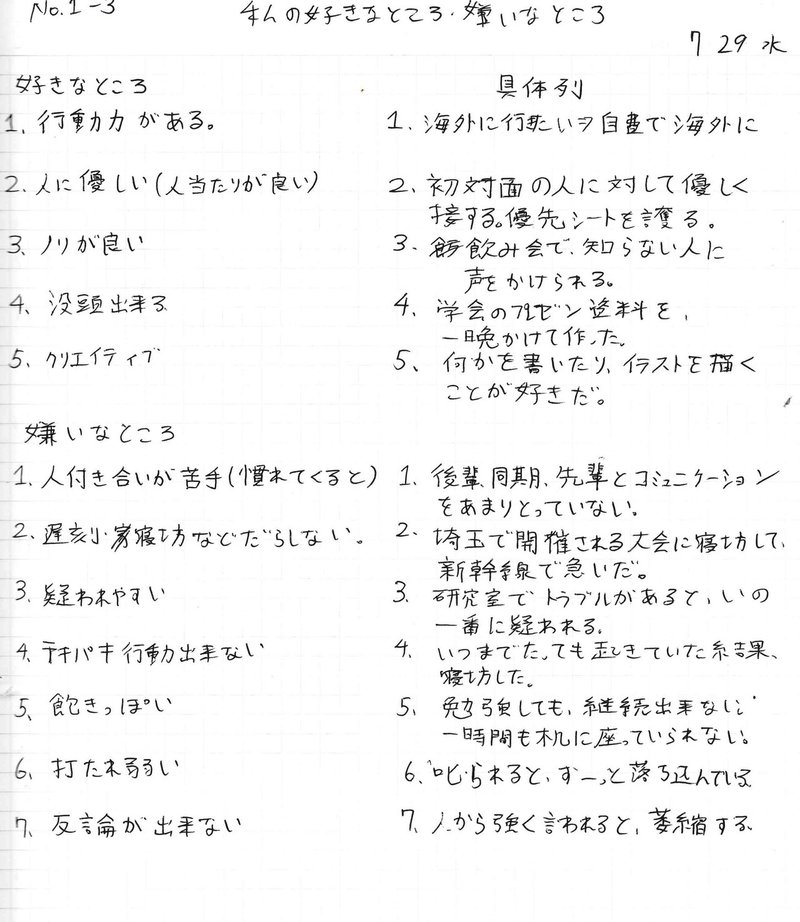 No.1-3 私の好きなところ・嫌いなところ
7 29 水
好きなところ 具体列
1. 行動力がある。 1. 海外に行きたい→自費で海外に
2. 人に優しい(人当たりが良い) 2. 初対面の人に対して優しく
接する。優先シートを譲る。
3. ノリが良い 3. 飲み会で、知らない人に
声をかけられる。
4. 没頭出来る 4. 学会のプレゼン資料を、
一晩かけて作った。
5. クリエイティブ 5. 何かを書いたり、イラストを描く
ことが好きだ。
嫌いなところ
1. 人付き合いが苦手(慣れてくると) 1. 後輩、同期、先輩とコミュニケーション
をあまりとっていない。
2. 遅刻、寝坊などだらしない。 2. 埼玉で開催される大会に寝坊して、
新幹線で急いだ。
3. 疑われやすい 3. 研究室でトラブルがあると、いの
一番に疑われる。
4. テキパキ行動出来ない 4. いつまでたっても起きていた結果、
寝坊した。
5. 飽きっぽい 5. 勉強しても、継続出来ない。
一時間も机に座っていられない。
6. 打たれ弱い 6. 叱られると、ずーっと落ち込んでいる
7. 反論が出来ない 7. 人から強く言われると、萎縮する。